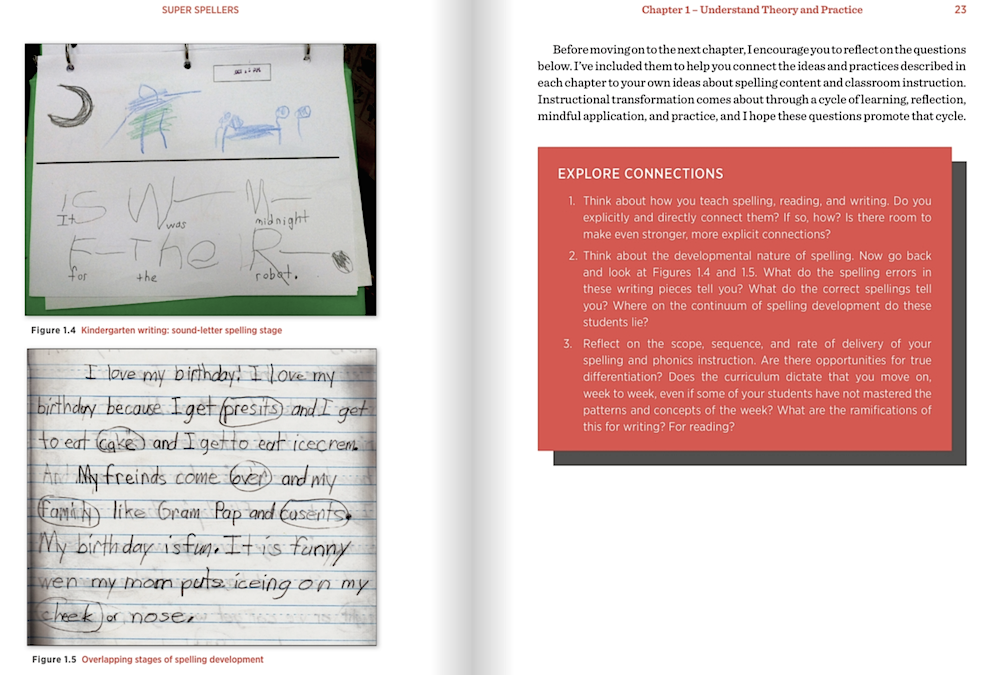 SUPER SPELLERS
IS W M
It was midnight
F The R
for the robot.
Figure 1.4 Kindergarten writing: sound-letter spelling stage
I love my birthday! I love my
birthday because I get presits and I get
to eat cake and I get to eat icecrem.
And My freinds come over and my
family like Gram Pap and cusents.
My birthday is fun. It is funny
wen my mom puts iceing on my
cheek or nose.
Figure 1.5 Overlapping stages of spelling development
Chapter 1 – Understand Theory and Practice 23
Before moving on to the next chapter, I encourage you to reflect on the questions
below. I’ve included them to help you connect the ideas and practices described in
each chapter to your own ideas about spelling content and classroom instruction.
Instructional transformation comes about through a cycle of learning, reflection,
mindful application, and practice, and I hope these questions promote that cycle.
EXPLORE CONNECTIONS
1. Think about how you teach spelling, reading, and writing. Do you
explicitly and directly connect them? If so, how? Is there room to
make even stronger, more explicit connections?
2. Think about the developmental nature of spelling. Now go back
and look at Figures 1.4 and 1.5. What do the spelling errors in
these writing pieces tell you? What do the correct spellings tell
you? Where on the continuum of spelling development do these
students lie?
3. Reflect on the scope, sequence, and rate of delivery of your
spelling and phonics instruction. Are there opportunities for true
differentiation? Does the curriculum dictate that you move on,
week to week, even if some of your students have not mastered the
patterns and concepts of the week? What are the ramifications of
this for writing? For reading?